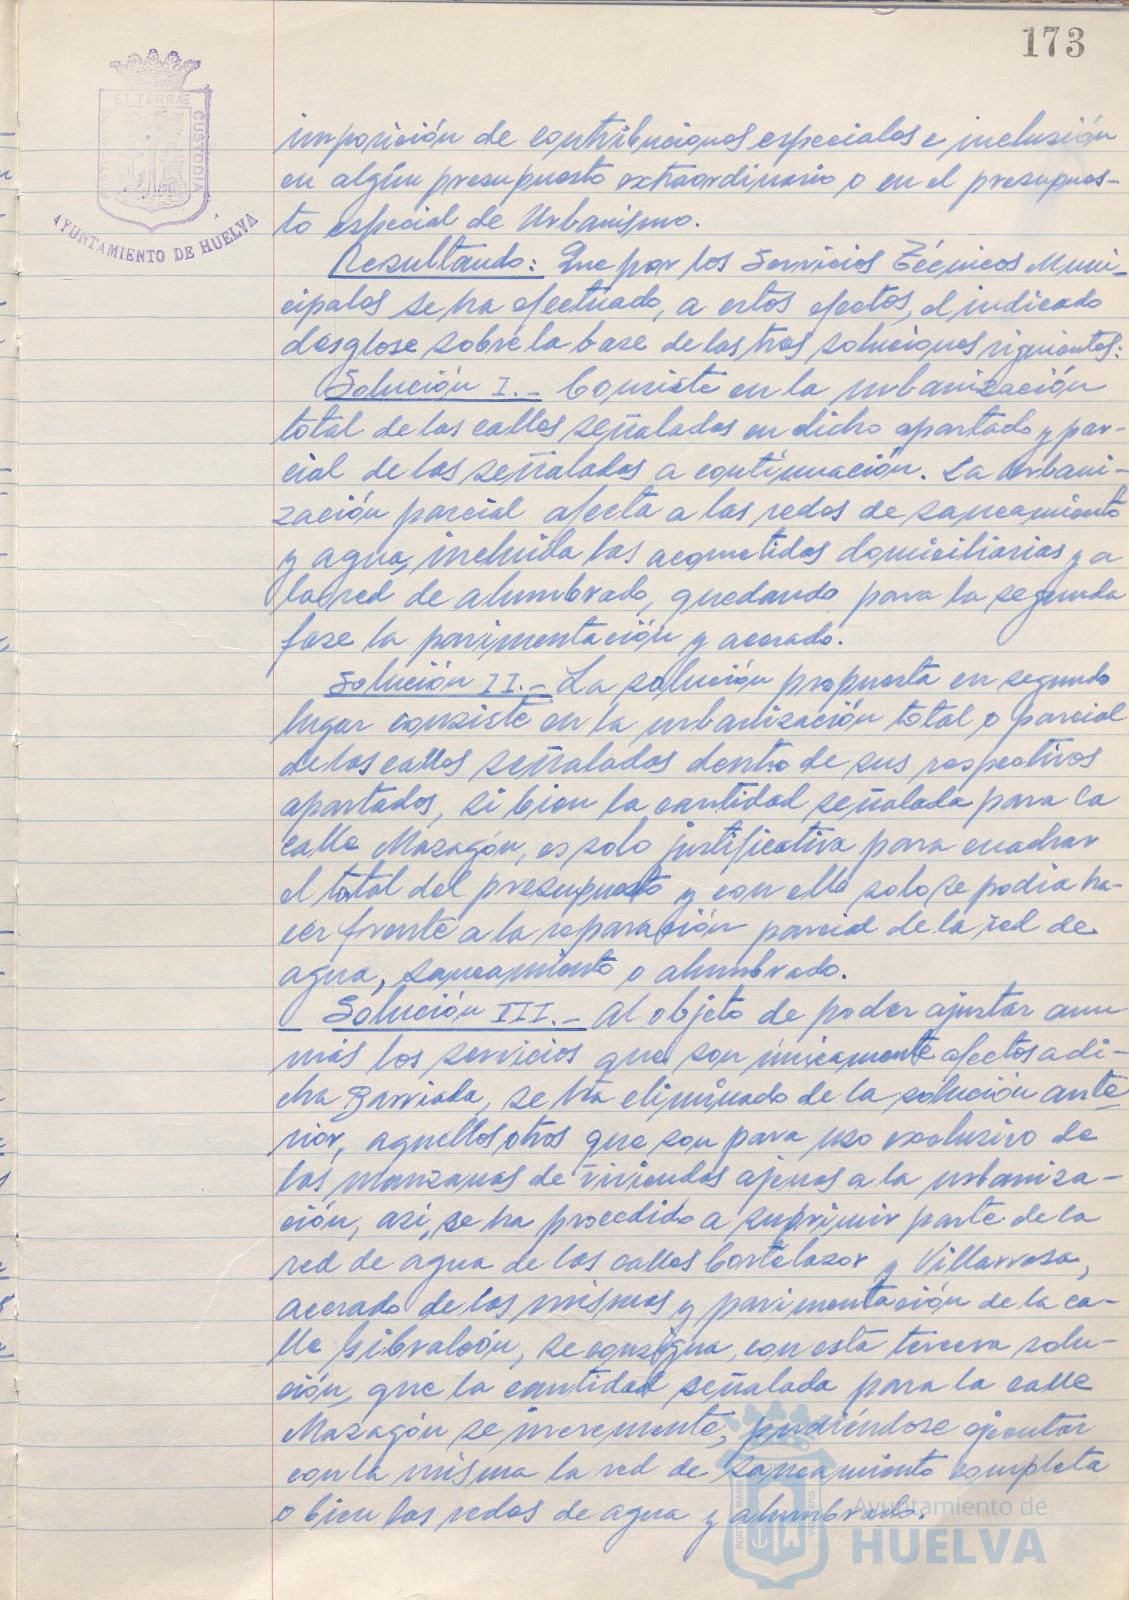 173
ET TERRÆ
CUSTODIA
AYUNTAMIENTO DE HUELVA
imposición de contribuciones especiales e inclusión
en algún presupuesto extraordinario o en el presupues-
to especial de Urbanismo.
Resultando: Que por los Servicios Técnicos Muni-
cipales se ha efectuado, a estos efectos, el indicado
desglose sobre la base de las tres soluciones siguientes:
Solución I.- Consiste en la urbanización
total de las calles señaladas en dicho apartado y par-
cial de las señaladas a continuación. La urbani-
zación parcial afecta a las redes de saneamiento
y agua, incluida las acometidas domiciliarias y a
la red de alumbrado, quedando para la segunda
fase la pavimentación y acerado.
Solución II.- La solución propuesta en segundo
lugar consiste en la urbanización total o parcial
de las calles señaladas dentro de sus respectivos
apartados, si bien la cantidad señalada para la
calle Mazagón, es solo justificativa para cuadrar
el total del presupuesto y con ella solo se podia ha-
cer frente a la reparación parcial de la red de
agua, saneamiento o alumbrado.
Solución III.- Al objeto de poder ajustar aun
más los servicios que son únicamente afectos a di-
cha Barriada, se ha eliminado de la solución ante-
rior, aquellos otros que son para uso exclusivo de
las manzanas de viviendas ajenas a la urbaniza-
ción, asi, se ha procedido a suprimir parte de la
red de agua de las calles Cortelazor y Villarrasa,
acerado de las mismas y pavimentación de la ca-
lle Gibraleón, se consigna, con esta tercera solu-
ción, que la cantidad señalada para la calle
Mazagón se incremente, pudiéndose ejecutar
con la misma la red de saneamiento completa
o bien las redes de agua y alumbrado.
Ayuntamiento de
HUELVA